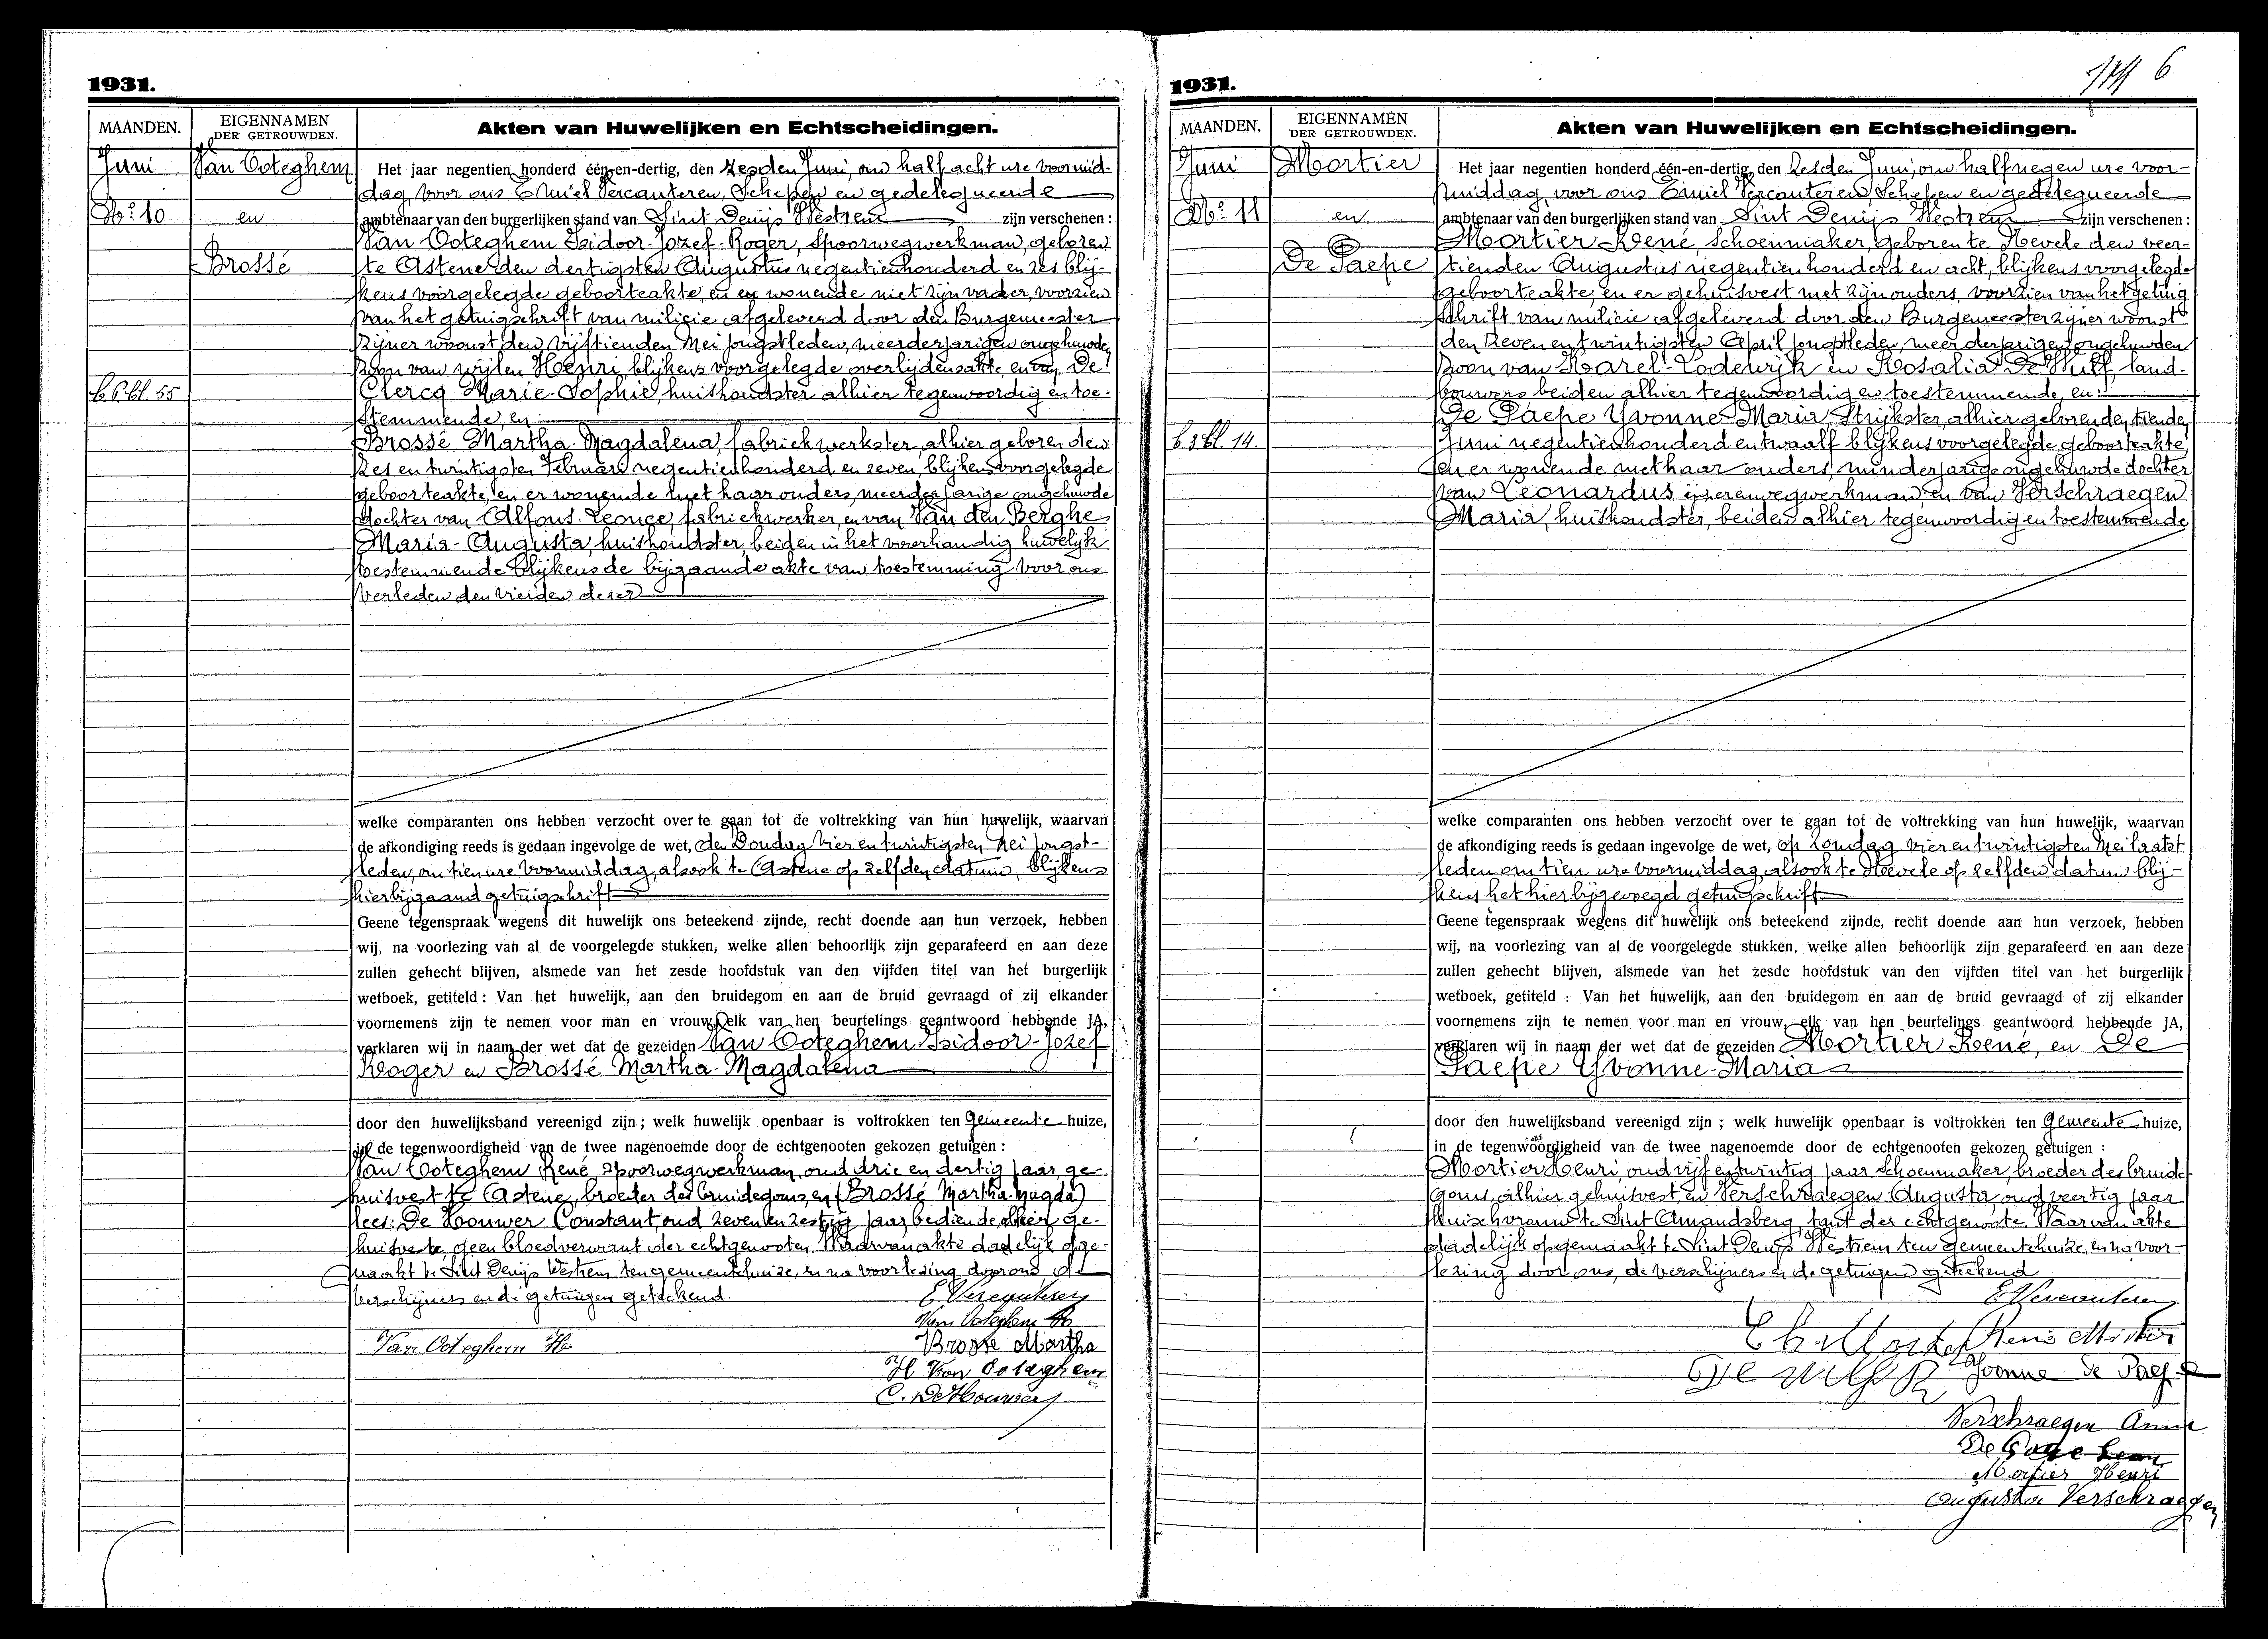 1931.
MAANDEN.
EIGENNAMEN
DER GETROUWDEN.
Akten van Huwelijken en Echtscheidingen.
Juni
Van Ooteghem
No 10
en
Brossé
b 6 bl. 55
Het jaar negentien honderd één-en-dertig, den zesden Juni, om half acht ure voormid-
dag, voor ons Emiel Vercauteren, Schepen en gedelegueerde
ambtenaar van den burgerlijken stand van Sint Denijs Westrem zijn verschenen :
Van Ooteghem Isidoor-Jozef-Roger, Spoorwegwerkman, geboren
te Astene den dertigsten Augustus negentienhonderd en zes blij-
kens voorgelegde geboorteakte, en er wonende met zijn vader, voorzien
van het getuigschrift van milicie afgeleverd door den Burgemeester
zijner woonst den vijftienden Mei jongstleden, meerderjarigen ongehuwde
zoon van wijlen Henri, blijkens voorgelegde overlijdensakte, en van De
Clercq Marie-Sophie, huishoudster alhier tegenwoordig en toe-
stemmende, en:
Brossé Martha-Magdalena, fabriekwerkster, alhier geboren den
zes en twintigsten Februari negentienhonderd en zeven, blijkens voorgelegde
geboorteakte, en er wonende met haar ouders, meerderjarige ongehuwde
dochter van Alfons-Leonce, fabriekwerker, en van Van den Berghe
Maria-Augusta, huishoudster, beiden in het voorhandig huwelijk
toestemmende blijkens de bijgaande akte van toestemming voor ons
verleden den vierden dezer
welke comparanten ons hebben verzocht over te gaan tot de voltrekking van hun huwelijk, waarvan
de afkondiging reeds is gedaan ingevolge de wet, den Zondag vier en twintigsten Mei jongst-
leden, om tien ure voormiddag, alsook te Astene op zelfden datum, blijkens
hierbijgaand getuigschrift
Geene tegenspraak wegens dit huwelijk ons beteekend zijnde, recht doende aan hun verzoek, hebben
wij, na voorlezing van al de voorgelegde stukken, welke allen behoorlijk zijn geparafeerd en aan deze
zullen gehecht blijven, alsmede van het zesde hoofdstuk van den vijfden titel van het burgerlijk
wetboek, getiteld : Van het huwelijk, aan den bruidegom en aan de bruid gevraagd of zij elkander
voornemens zijn te nemen voor man en vrouw, elk van hen beurtelings geantwoord hebbende JA,
verklaren wij in naam der wet dat de gezeiden Van Ooteghem Isidoor-Jozef
Roger en Brossé Martha-Magdalena
door den huwelijksband vereenigd zijn ; welk huwelijk openbaar is voltrokken ten Gemeente huize,
in de tegenwoordigheid van de twee nagenoemde door de echtgenooten gekozen getuigen :
Van Ooteghem René, spoorwegwerkman, oud drie en dertig jaar, ge-
huisvest te Astene, broeder des bruidegoms, en (Brossé Martha-Magda)
lees: De Houwer Constant, oud zeven en zestig jaar, bediende, alhier ge-
huisveste, geen bloedverwant der echtgenooten. Waarvan akte dadelijk opge-
maakt te Sint Denijs Westrem ten gemeentehuize, en na voorlezing door ons de
verschijners en de getuigen geteekend.
E Vercauteren
Van Ooteghem
Van Ooteghem
Brosse Martha
H Van Ooteghem
C. De Houwer
6
1931.
MAANDEN.
EIGENNAMEN
DER GETROUWDEN.
Akten van Huwelijken en Echtscheidingen.
Juni
Mortier
No 11
en
De Paepe
b 3 bl. 14.
Het jaar negentien honderd één-en-dertig, den zesden Juni, om half negen ure voor-
middag, voor ons Emiel Vercauteren, Schepen en gedelegueerde
ambtenaar van den burgerlijken stand van Sint Denijs Westrem zijn verschenen :
Mortier René, Schoenmaker, geboren te Nevele den veer-
tienden Augustus negentienhonderd en acht, blijkens voorgelegde
geboorteakte, en er gehuisvest met zijn ouders, voorzien van het getuig
schrift van milicie afgeleverd door den Burgemeester zijner woonst
den zeven en twintigsten April jongstleden, meerderjarigen ongehuwden
zoon van Karel-Lodewijk en Rosalia De Wulf, land-
bouwers beiden alhier tegenwoordig en toestemmende, en:
De Paepe Yvonne-Maria Strijkster, alhier geboren den tienden
Juni negentienhonderd en twaalf blijkens voorgelegde geboorteakte,
en er wonende met haar ouders, minderjarige ongehuwde dochter
van Leonardus ijzerenwegwerkman, en van Verschraegen
Maria, huishoudster, beiden alhier tegenwoordig en toestemmende
welke comparanten ons hebben verzocht over te gaan tot de voltrekking van hun huwelijk, waarvan
de afkondiging reeds is gedaan ingevolge de wet, op zondag vier en twintigsten Mei laatst
leden om tien ure voormiddag, alsook te Nevele op zelfden datum blij-
kens het hierbijgevoegd getuigschrift
Geene tegenspraak wegens dit huwelijk ons beteekend zijnde, recht doende aan hun verzoek, hebben
wij, na voorlezing van al de voorgelegde stukken, welke allen behoorlijk zijn geparafeerd en aan deze
zullen gehecht blijven, alsmede van het zesde hoofdstuk van den vijfden titel van het burgerlijk
wetboek, getiteld : Van het huwelijk, aan den bruidegom en aan de bruid gevraagd of zij elkander
voornemens zijn te nemen voor man en vrouw, elk van hen beurtelings geantwoord hebbende JA,
verklaren wij in naam der wet dat de gezeiden Mortier René, en De
Paepe Yvonne-Maria
door den huwelijksband vereenigd zijn ; welk huwelijk openbaar is voltrokken ten Gemeente huize,
in de tegenwoordigheid van de twee nagenoemde door de echtgenooten gekozen getuigen :
Mortier Henri, oud vijf en twintig jaar schoenmaker, broeder des bruide-
goms, alhier gehuisvest, en Verschraegen Augusta, oud veertig jaar
Huisvrouw te Sint Amandsberg, tant der echtgenoote. Waarvan akte
dadelijk opgemaakt te Sint Denijs Westrem ten gemeentehuize, en na voor-
lezing door ons, de verschijners en de getuigen geteekend
E Vercauteren
René Mortier
Yvonne De Paepe
Verschraegen Anna
De Leon
Mortier Henri
Augusta Verschraegen